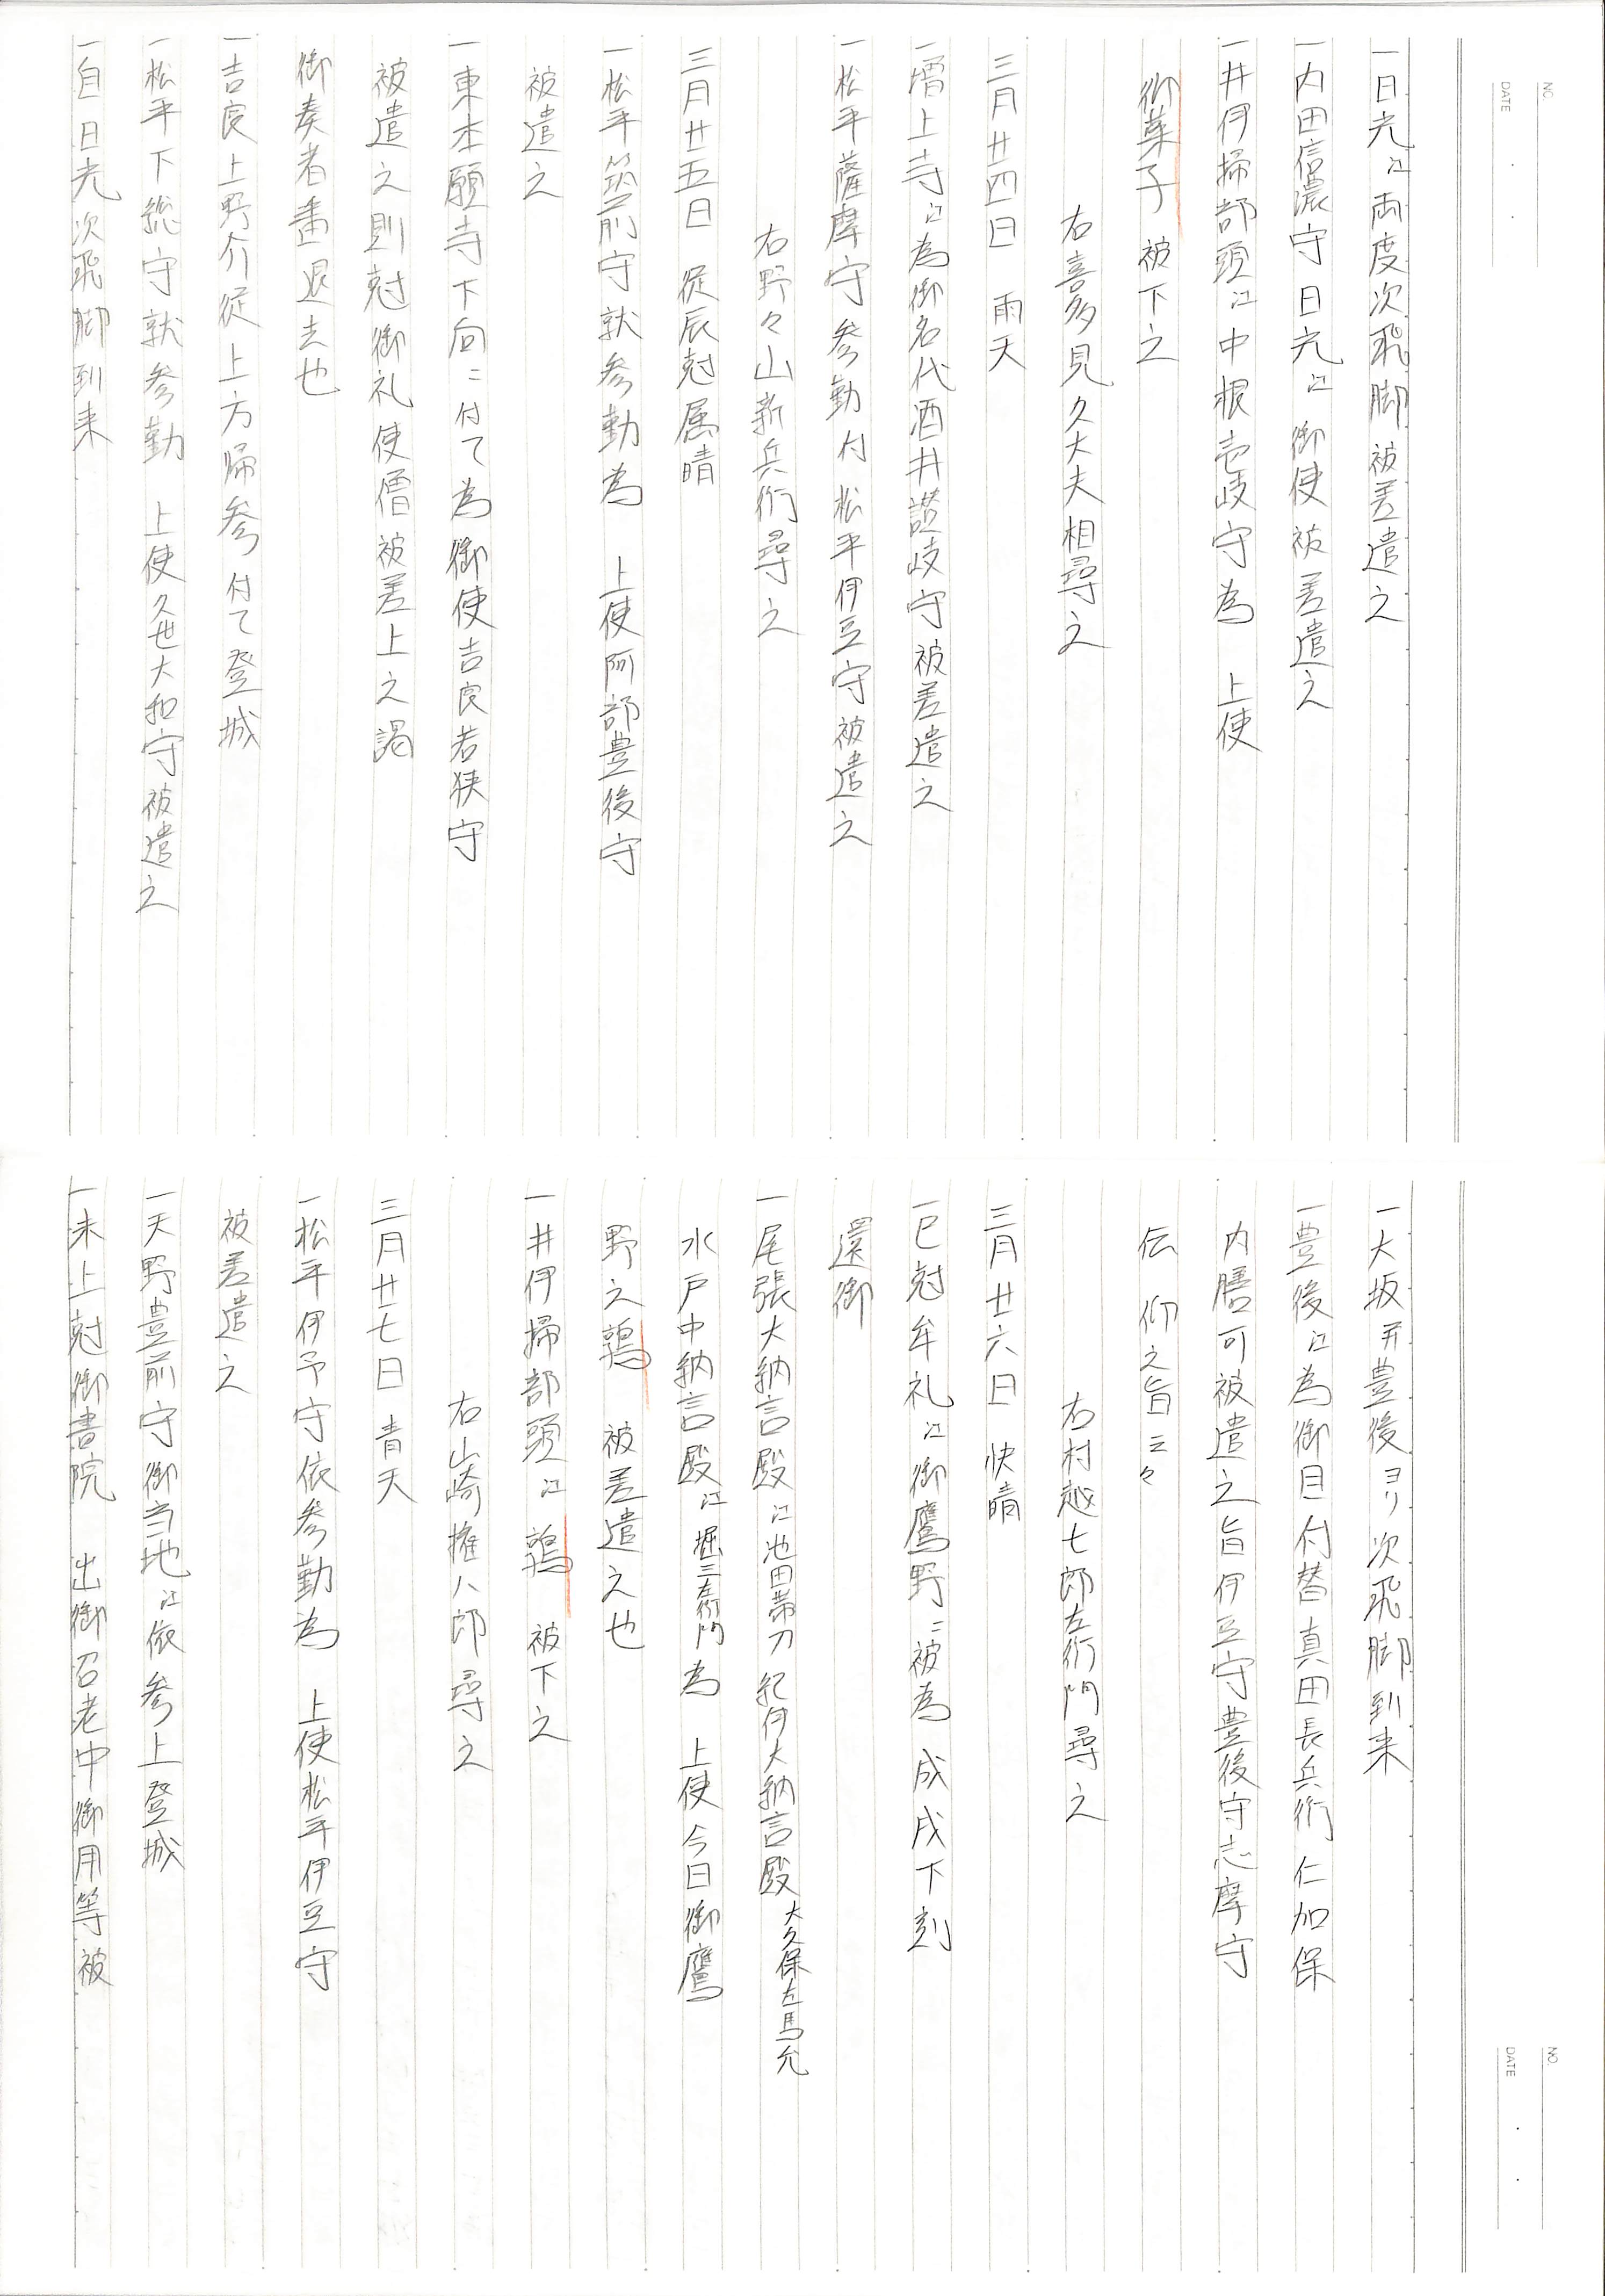 NO.
DATE
一日光江両度次飛脚被差遣之
一内田信濃守日光江御使被差遣之
一井伊掃部頭江中根壱岐守為　上使
御菓子　被下之
右喜多見久大夫相尋之
三月廿四日　雨天
一増上寺江為御名代酒井讃岐守被差遣之
一松平薩摩守参勤付松平伊豆守被遣之
右野々山新兵衛尋之
三月廿五日　従辰尅属晴
一松平筑前守就参勤為　上使阿部豊後守
被遣之
一東本願寺下向ニ付て為御使吉良若狭守
被遣之則尅御礼使僧被差上之謁
御奏者番退去也
一吉良上野介従上方帰参付て登城
一松平下総守就参勤　上使久世大和守被遣之
一自日光次飛脚到来
NO.
DATE
一大坂并豊後ヨリ次飛脚到来
一豊後江為御目付替真田長兵衛仁加保
内膳可被遣之旨伊豆守豊後守志摩守
伝　仰之旨云々
右村越七郎左衛門尋之
三月廿六日　快晴
一巳尅牟礼江御鷹野ニ被為　成戌下刻
還御
一尾張大納言殿江池田帯刀紀伊大納言殿大久保左馬允
水戸中納言殿江堀三左衛門為　上使今日御鷹
野之鶉　被差遣之也
一井伊掃部頭江　鶉　被下之
右山崎権八郎尋之
三月廿七日　青天
一松平伊予守依参勤為　上使松平伊豆守
被差遣之
一天野豊前守御当地江依参上登城
一未上尅御書院　出御召老中御用等被